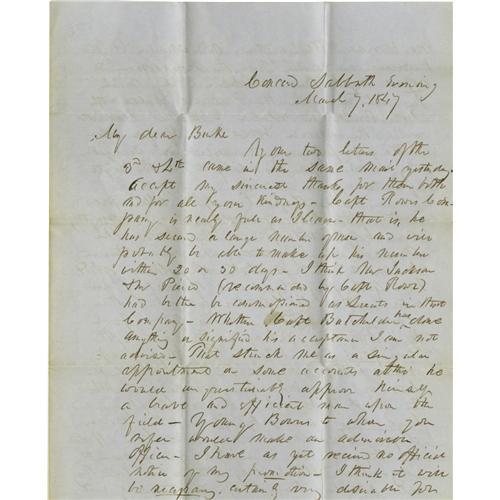 Concord Sabbath Evening
March 7, 1847
My dear Burke
Your two letters of the
3d & 4th came in the same mail yesterday.
accept my sincerest thanks for them both
and for all your kindness - Capt Rows Com-
pany is nearly full as I learn - that is, he
has secured a large number of men and will
probably be able to make up his number
within 20 or 30 days - I think Mr Jackson
& Mr Pierce (recommended by Capt Row)
had better be commissioned as Lieuts in that
Company - Whether Capt Batchelder has done
anything or signified his acceptance I am not
advised - That struck me as a singular
appointment on some accounts altho he
would unquestionably approve himself
a brave and efficient man upon the
field - Young Bowers to whom you
refer would make an admirable
officer - I have as yet received no official
notice of my promotion - I think it will
be necessary, certainly very desirable for